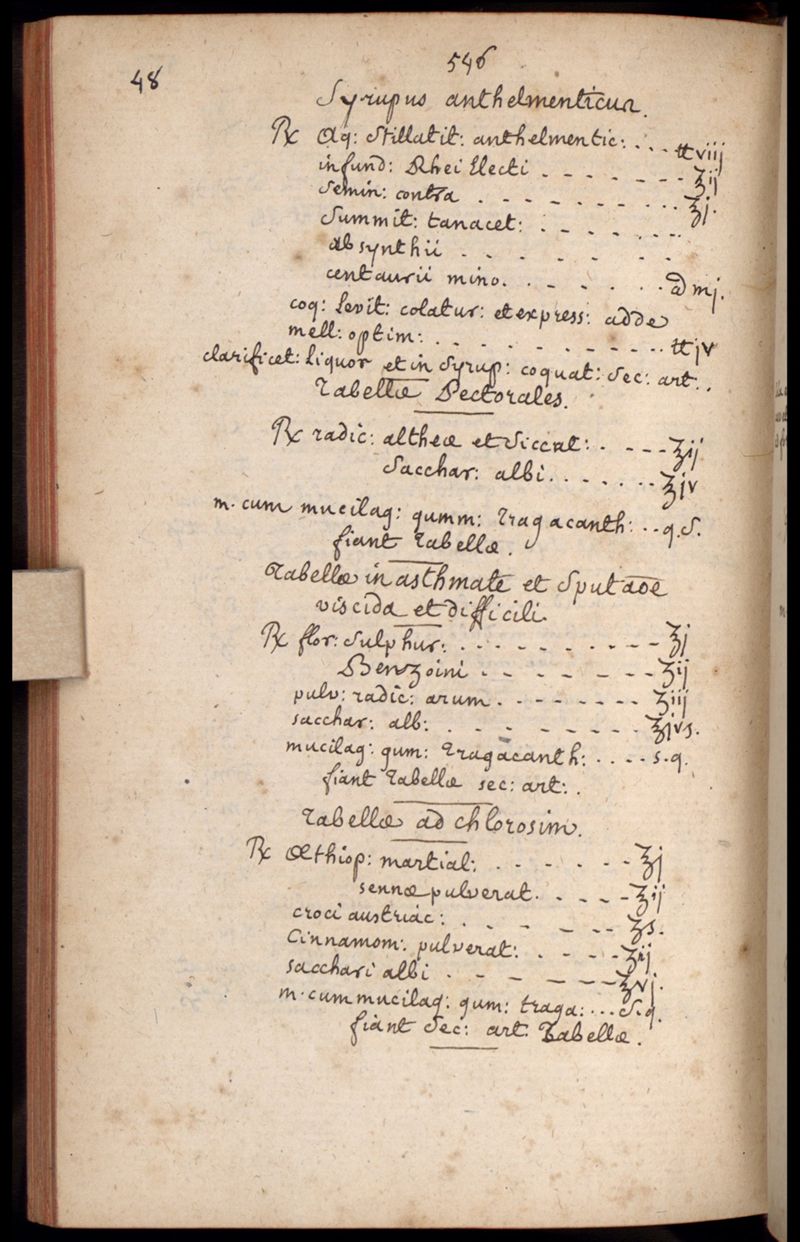 48
546
Syrupus anthelmenticus.
℞ Aq: Stillatit: anthelmentic: ... ℔ viij
infund: Rhei Electi - - - - - - ʒij
Semin: contra . - - - - - - - ... ʒj.
Summit: tanacet: . - - - - - ...
absynthii . . - - - - - -
centaurii mino. . - - - - . . . ad mj.
coq: levit: colatur: et express: adde
mell: optim: . . - - - - - - - ... ℔ jv
clarificet: liquor et in Syrup: coquat: Sec: art. .
Tabellæ Pectorales.
℞ radic: altheæ et Siccat: . - - - ʒij
Sacchar: albi . . . . . - - ʒjv
m. cum mucilag: gumm: Tragacanth: . . q.S.
fiant Tabellæ .
Tabellæ in asthmate et Sputaoe
viscida et difficili.
℞ flor: Sulphur: . . . - - - . - - - ʒj
Benzoini . - - - - - - ʒij
pulv: radic: arum . - - - - - - - ʒiij
sacchar: alb: . - - - - - - - - ʒjvs.
mucilag: gum: Tragacanth: . . . - - s.q.
fiant Tabellæ sec: art: .
Tabellæ ad chlorosim.
℞ Æthiop: martial: . - - - - - - ʒj
sennæ pulverat. . - - - - ʒij
croci austriac: . . - - - - - ʒs.
Cinnamom: pulverat: . - - - - ʒij
sacchari albi . - - - - - - - ʒvj.
m. cum mucilag: gum: traga: ... S.q.
fiant Sec: art: Tabellæ .